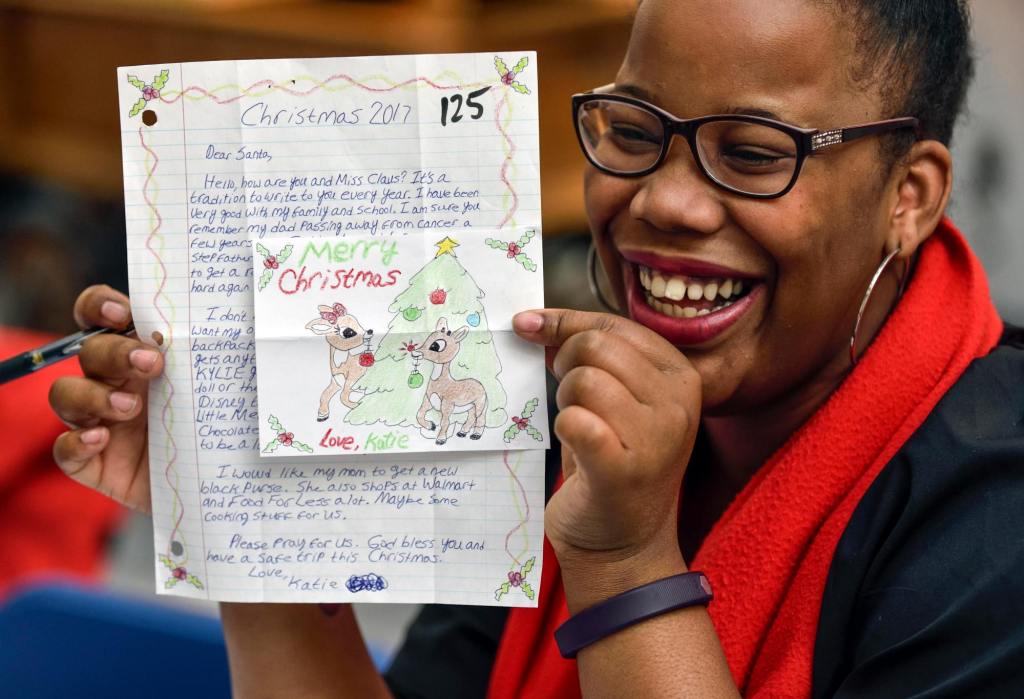 Christmas 2017
125
Dear Santa,
Hello, how are you and Miss Claus? It's a
tradition to write to you every year. I have been
very good with my family and school. I am sure you
remember my dad passing away from cancer a
few years
step father
to get a
hard again
I don't
want my
backpack
gets anyt
KYLIE
doll or the
Disney
Little Me
Chocolate
to be a
Merry
Christmas
Love, Katie
I would like my mom to get a new
black purse. She also shops at Walmart
and Food For Less a lot. Maybe some
cooking stuff for us.
Please pray for us. God bless you and
have a safe trip this Christmas.
Love,
Katie